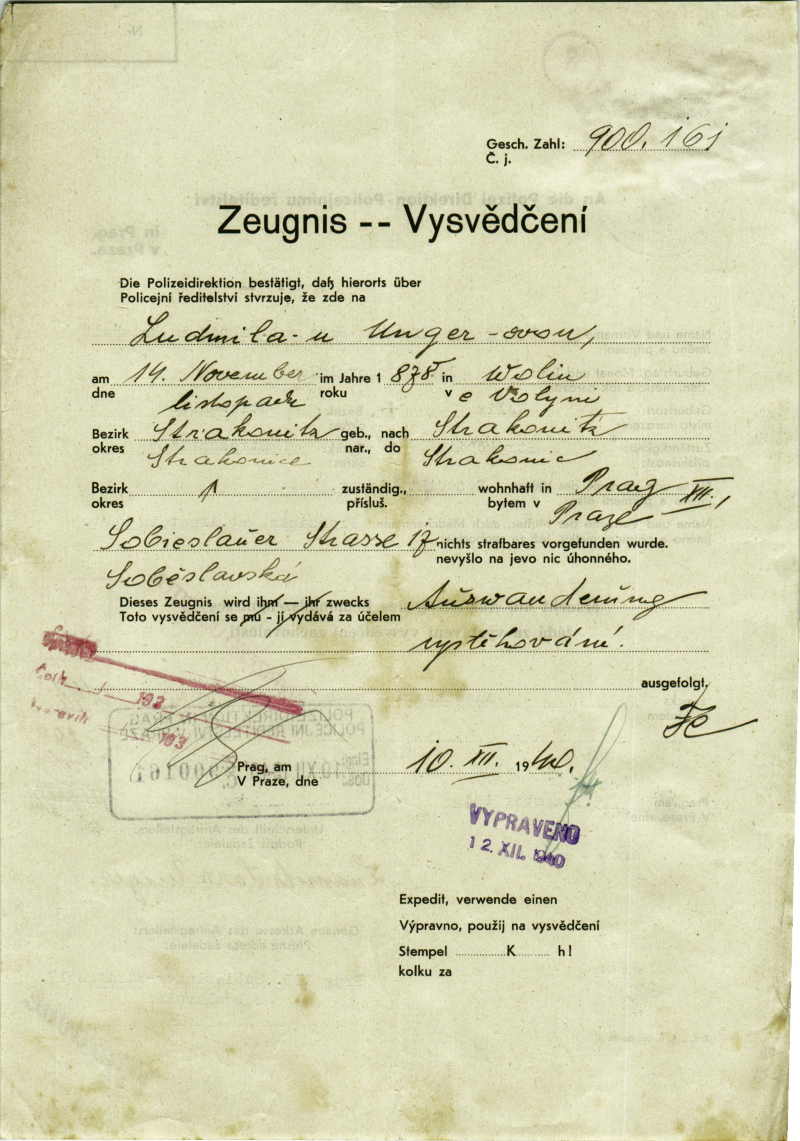 Gesch. Zahl: 900.161
Č. j.
Zeugnis -- Vysvědčení
Die Polizeidirektion bestätigt, daß hierorts über
Policejní ředitelství stvrzuje, že zde na
Ludmila-u Unger-ovou,
am 14. November im Jahre 1 878 in Wolin
dne listopadu roku v e Volyni
Bezirk Strakonitz geb., nach Strakonitz
okres Strakonice nar., do Strakonic
Bezirk zuständig., wohnhaft in Prag XII.,
okres přísluš. bytem v Praze
Sobieslauer Strasse 17 nichts strafbares vorgefunden wurde.
Soběslavská nevyšlo na jevo nic úhonného.
Dieses Zeugnis wird ihm — ihr zwecks Auswanderung
Toto vysvědčení se mu - jí vydává za účelem vystěhování.
ausgefolgt.
Prag, am 10. XII. 1940.
V Praze, dne
VYPRAVENO
12. XII. 1940
Expedit, verwende einen
Výpravno, použij na vysvědčení
Stempel K h!
kolku za